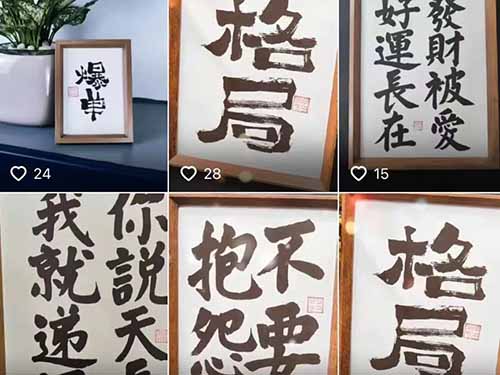 爆单
24
格
局
28
發財被愛
好運長在
15
你說天
我就递
不要
抱怨
格
局